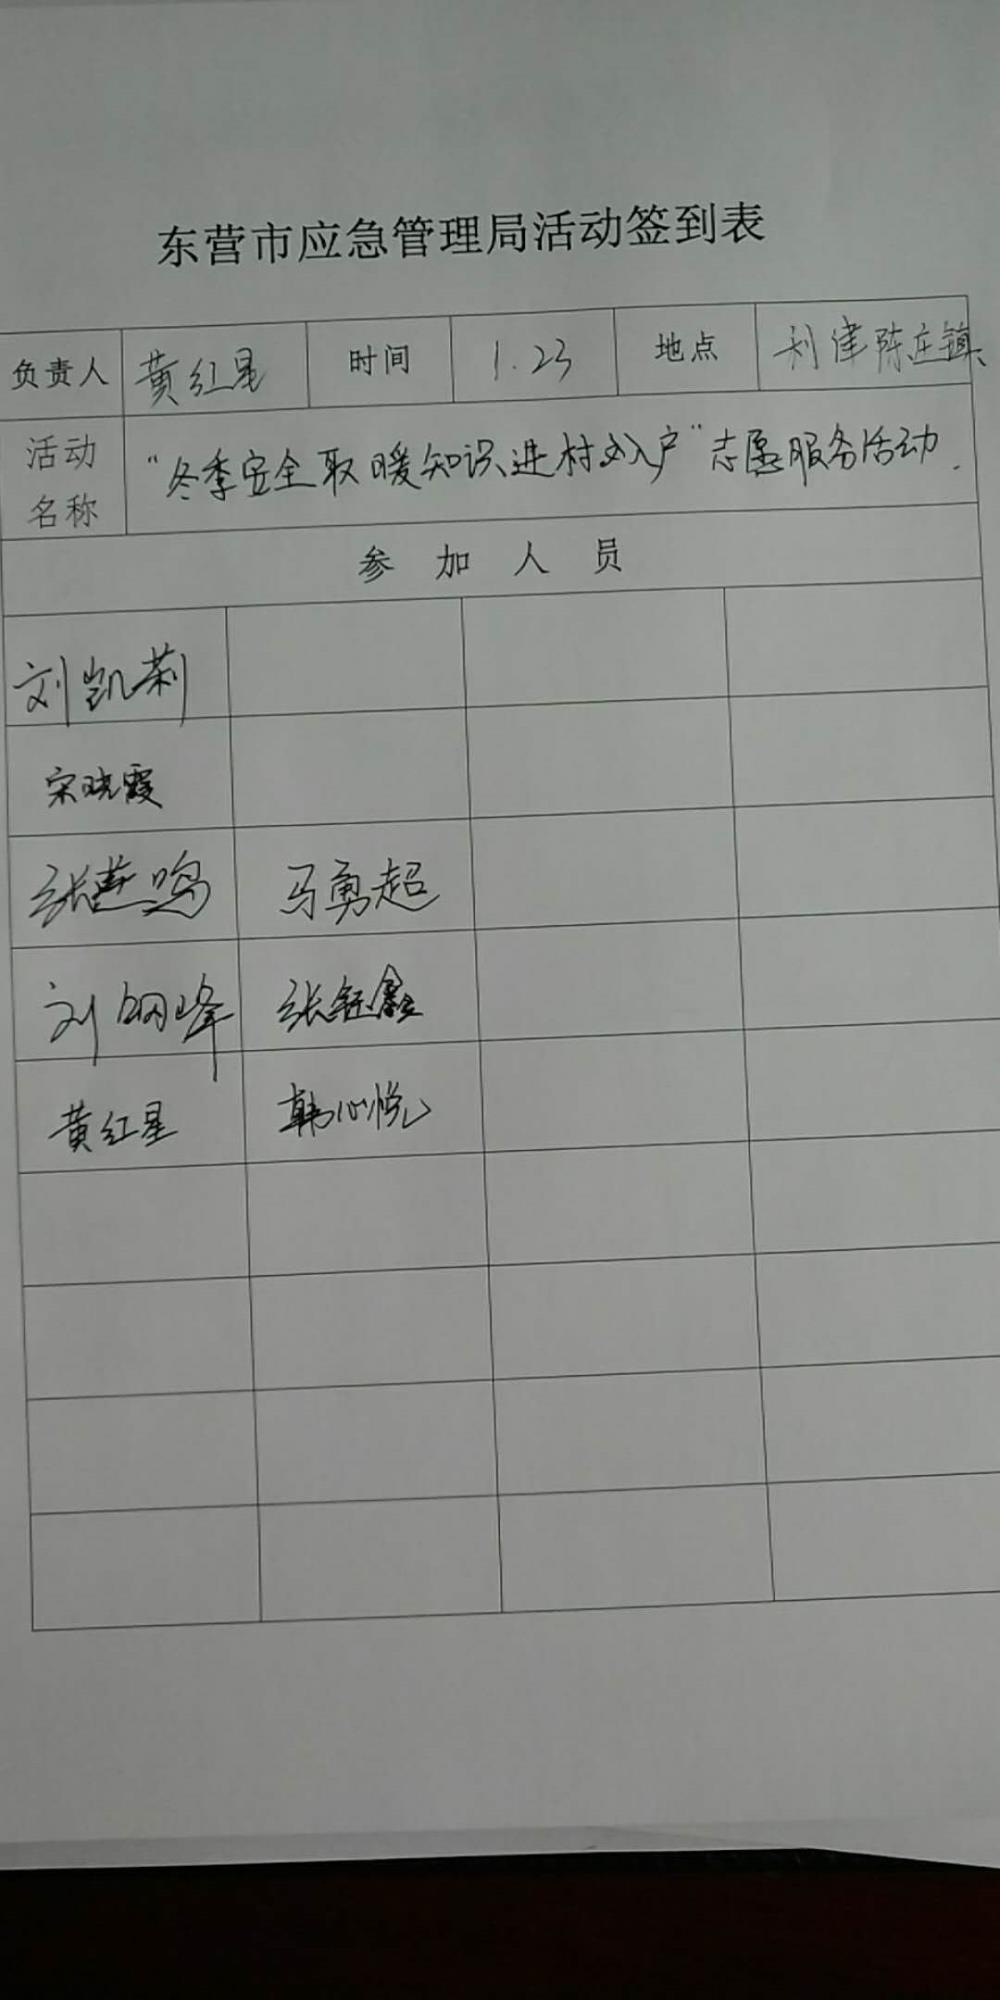 东营市应急管理局活动签到表
负责人 黄红星 时间 1.23 地点 利津陈庄镇
活动名称 “冬季安全取暖知识进村入户”志愿服务活动.
参加人员
刘凯莉
宋晓霞
张燕鸣 马勇超
刘峰 张钰鑫
黄红星 韩心悦